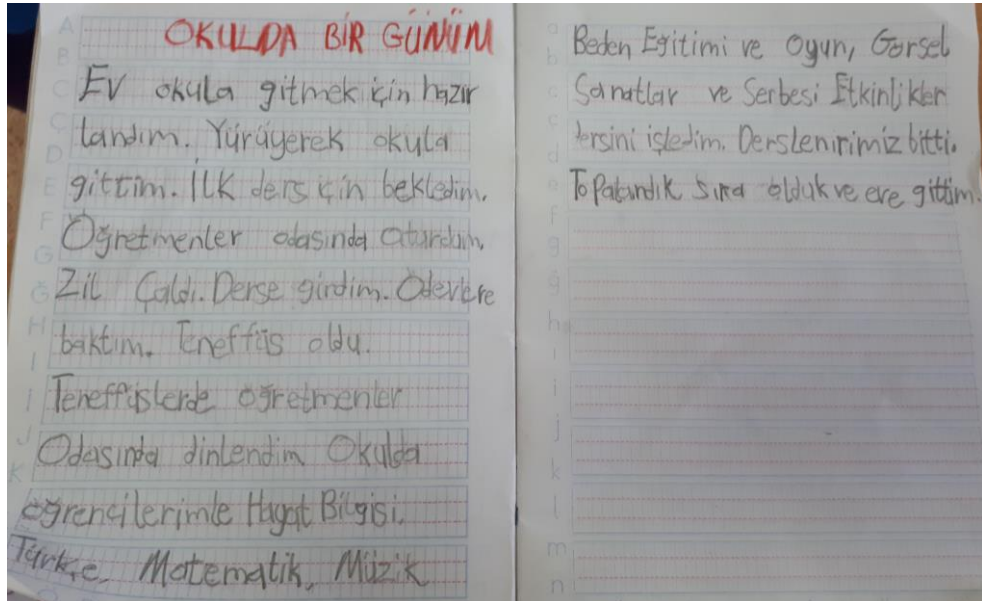 OKULDA BİR GÜNÜM
Ev okula gitmek için hazır
landım. Yürüyerek okula
gittim. İLK ders için bekledim.
Öğretmenler odasında oturdum.
Zil Çaldı. Derse girdim. Ödevlere
baktım. Teneffüs oldu.
Teneffüslerde öğretmenler
Odasında dinlendim Okulda
öğrencilerimle Hayat Bilgisi,
Türkçe, Matematik, Müzik
Beden Eğitimi ve Oyun, Görsel
Sanatlar ve Serbest Etkinlikler
dersini işledim. Derslenirimiz bitti.
Toparlandık Sıra olduk ve eve gittim.